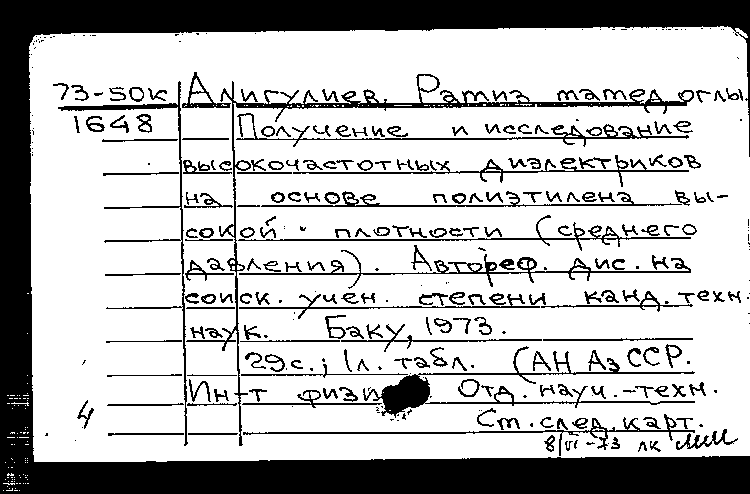 73-50к Алигулиев, Рамиз тамед оглы.
1648 Получение и исследование
высокочастотных диэлектриков
на основе полиэтилена вы-
сокой плотности (среднего
давления). Автореф. дис. на
соиск. учен. степени канд. техн.
наук. Баку, 1973.
29с.; 1л. табл. (АН АзССР.
Ин-т физи Отд. науч.-техн.
4 Ст. след. карт.
8/VI-73 лк